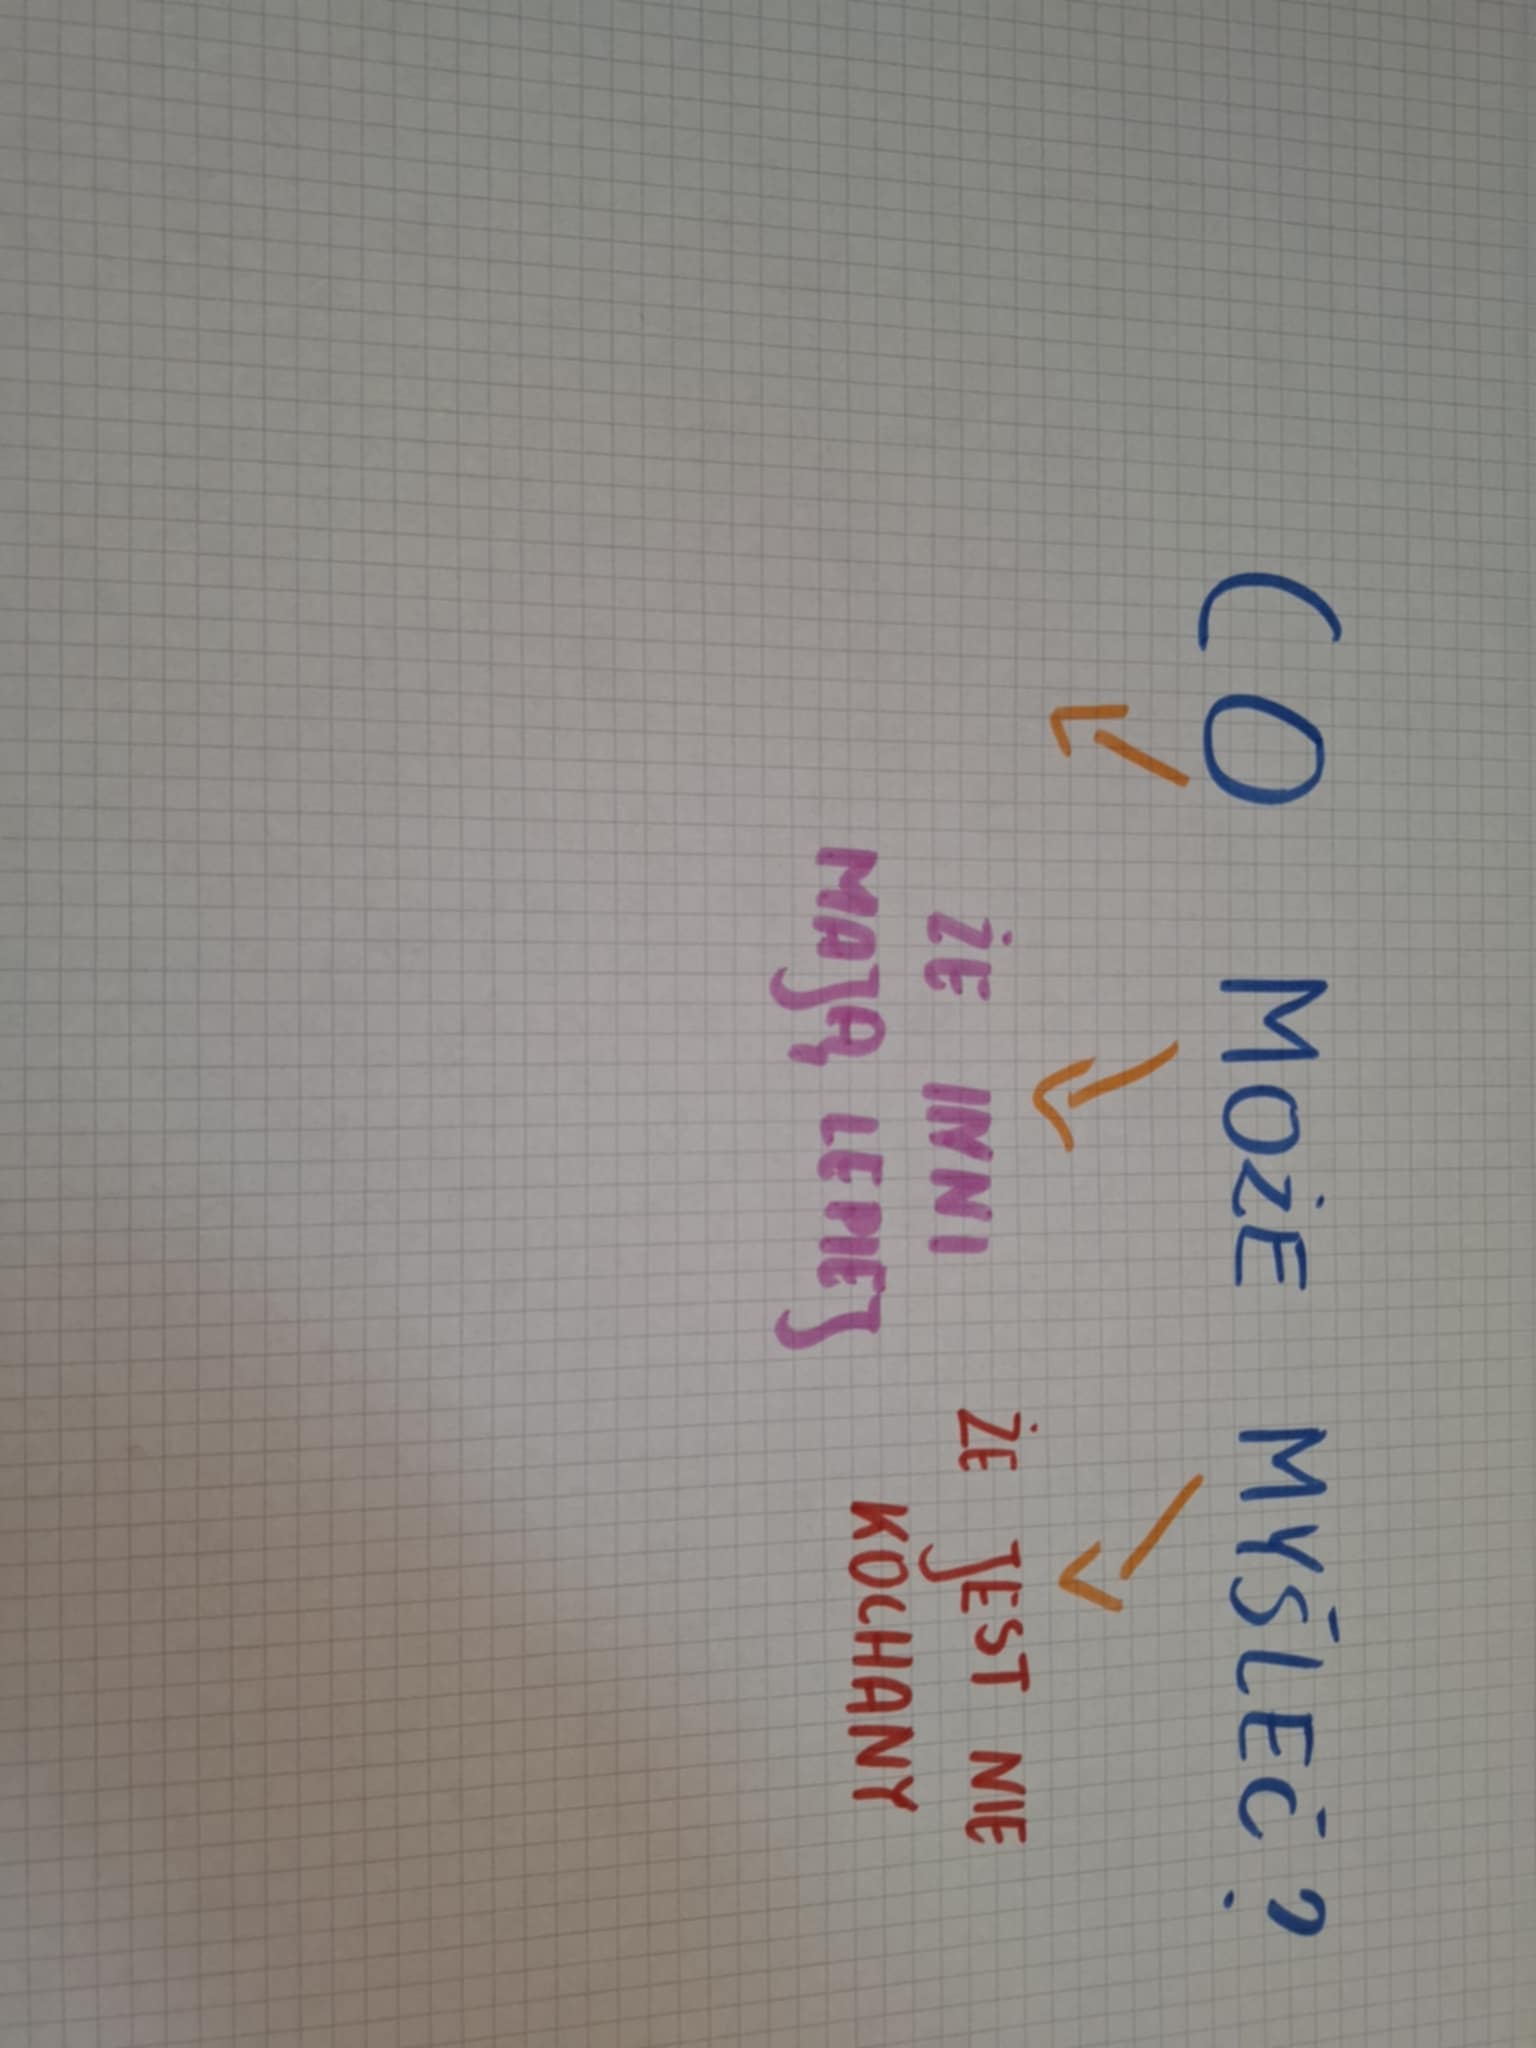 CO MOŻE MYŚLEĆ?
ŻE INNI
MAJĄ LEPIEJ
ŻE JEST NIE
KOCHANY